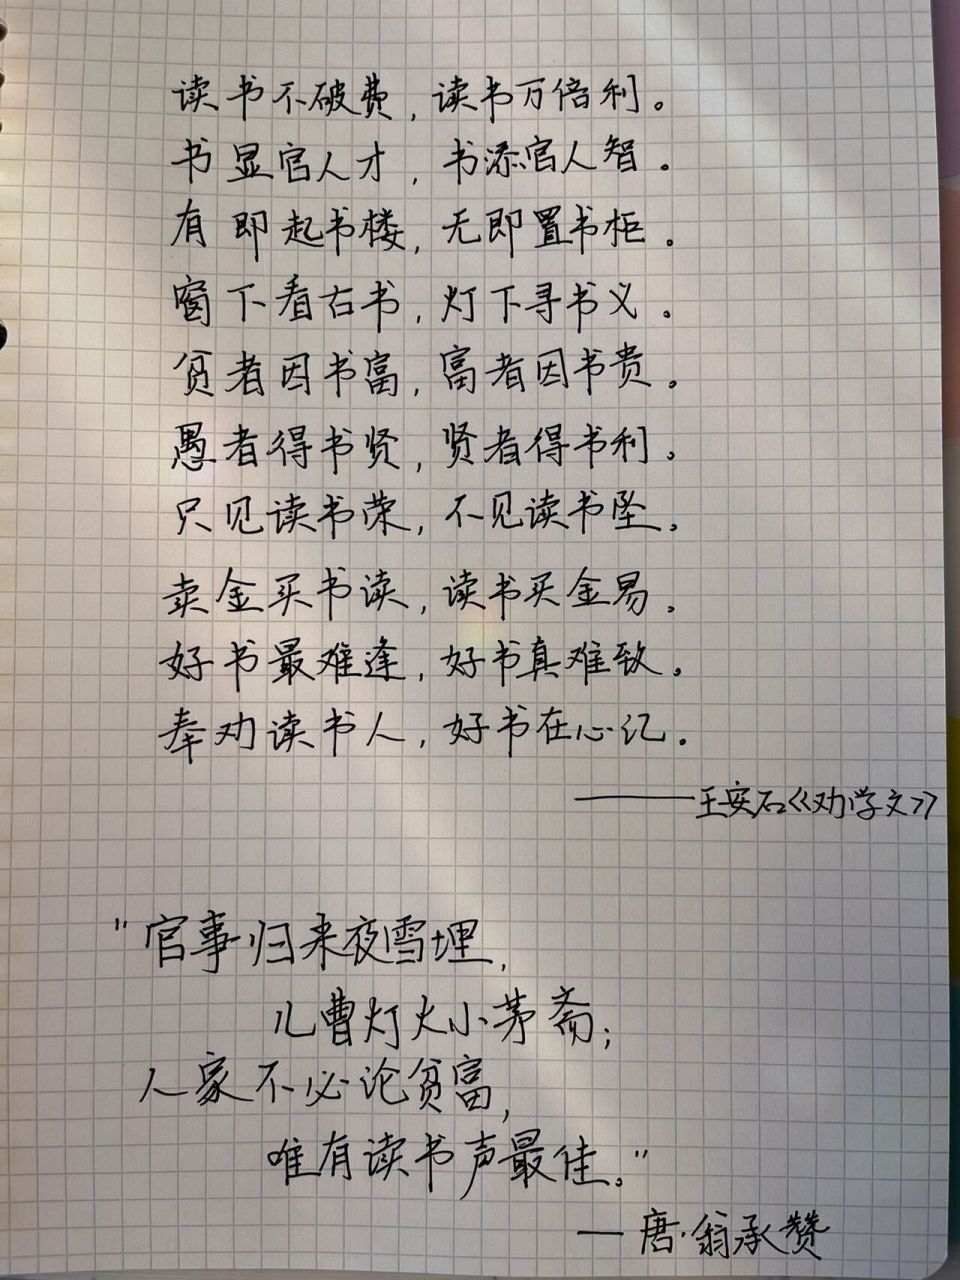 读书不破费，读书万倍利。
书显官人才，书添官人智。
有即起书楼，无即置书柜。
窗下看古书，灯下寻书义。
贫者因书富，富者因书贵。
愚者得书贤，贤者得书利。
只见读书荣，不见读书坠。
卖金买书读，读书买金易。
好书最难逢，好书真难致。
奉劝读书人，好书在心记。
——王安石《劝学文》
“官事归来夜雪埋，
儿曹灯火小茅斋；
人家不必论贫富，
唯有读书声最佳。”
—唐·翁承赞